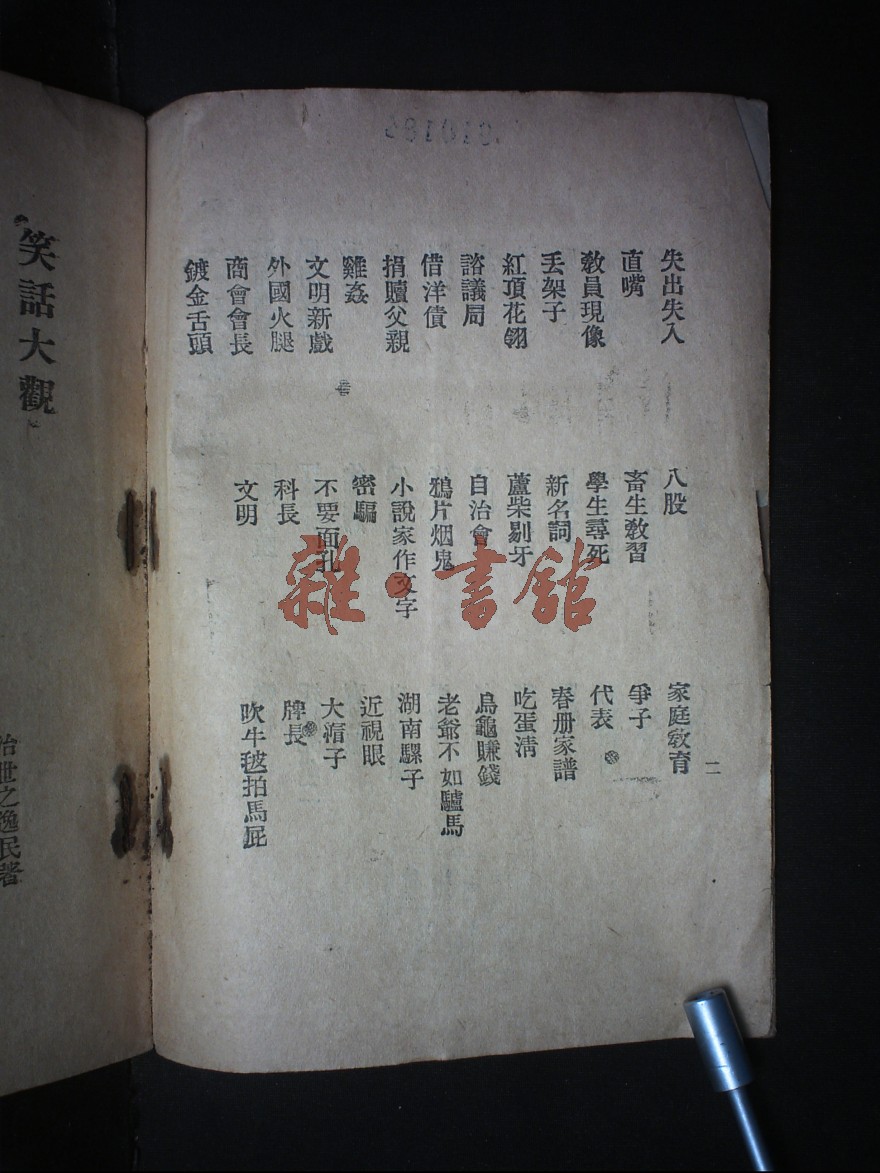 二
失出失入 八股 家庭教育
直嘴 畜生教習 爭子
教員現像 學生尋死 代表
丟架子 新名詞 春册家譜
紅頂花翎 蘆柴剔牙 吃蛋淸
諮議局 自治會 烏龜賺錢
借洋債 鴉片烟鬼 老爺不如驢馬
捐贖父親 小說家作文字 湖南騾子
雞姦 密騙 近視眼
文明新戲 不要面孔 大帽子
外國火腿 科長 牌長
商會會長 文明 吹牛拍馬屁
鍍金舌頭
笑話大觀
治世之逸民著
雜·書館